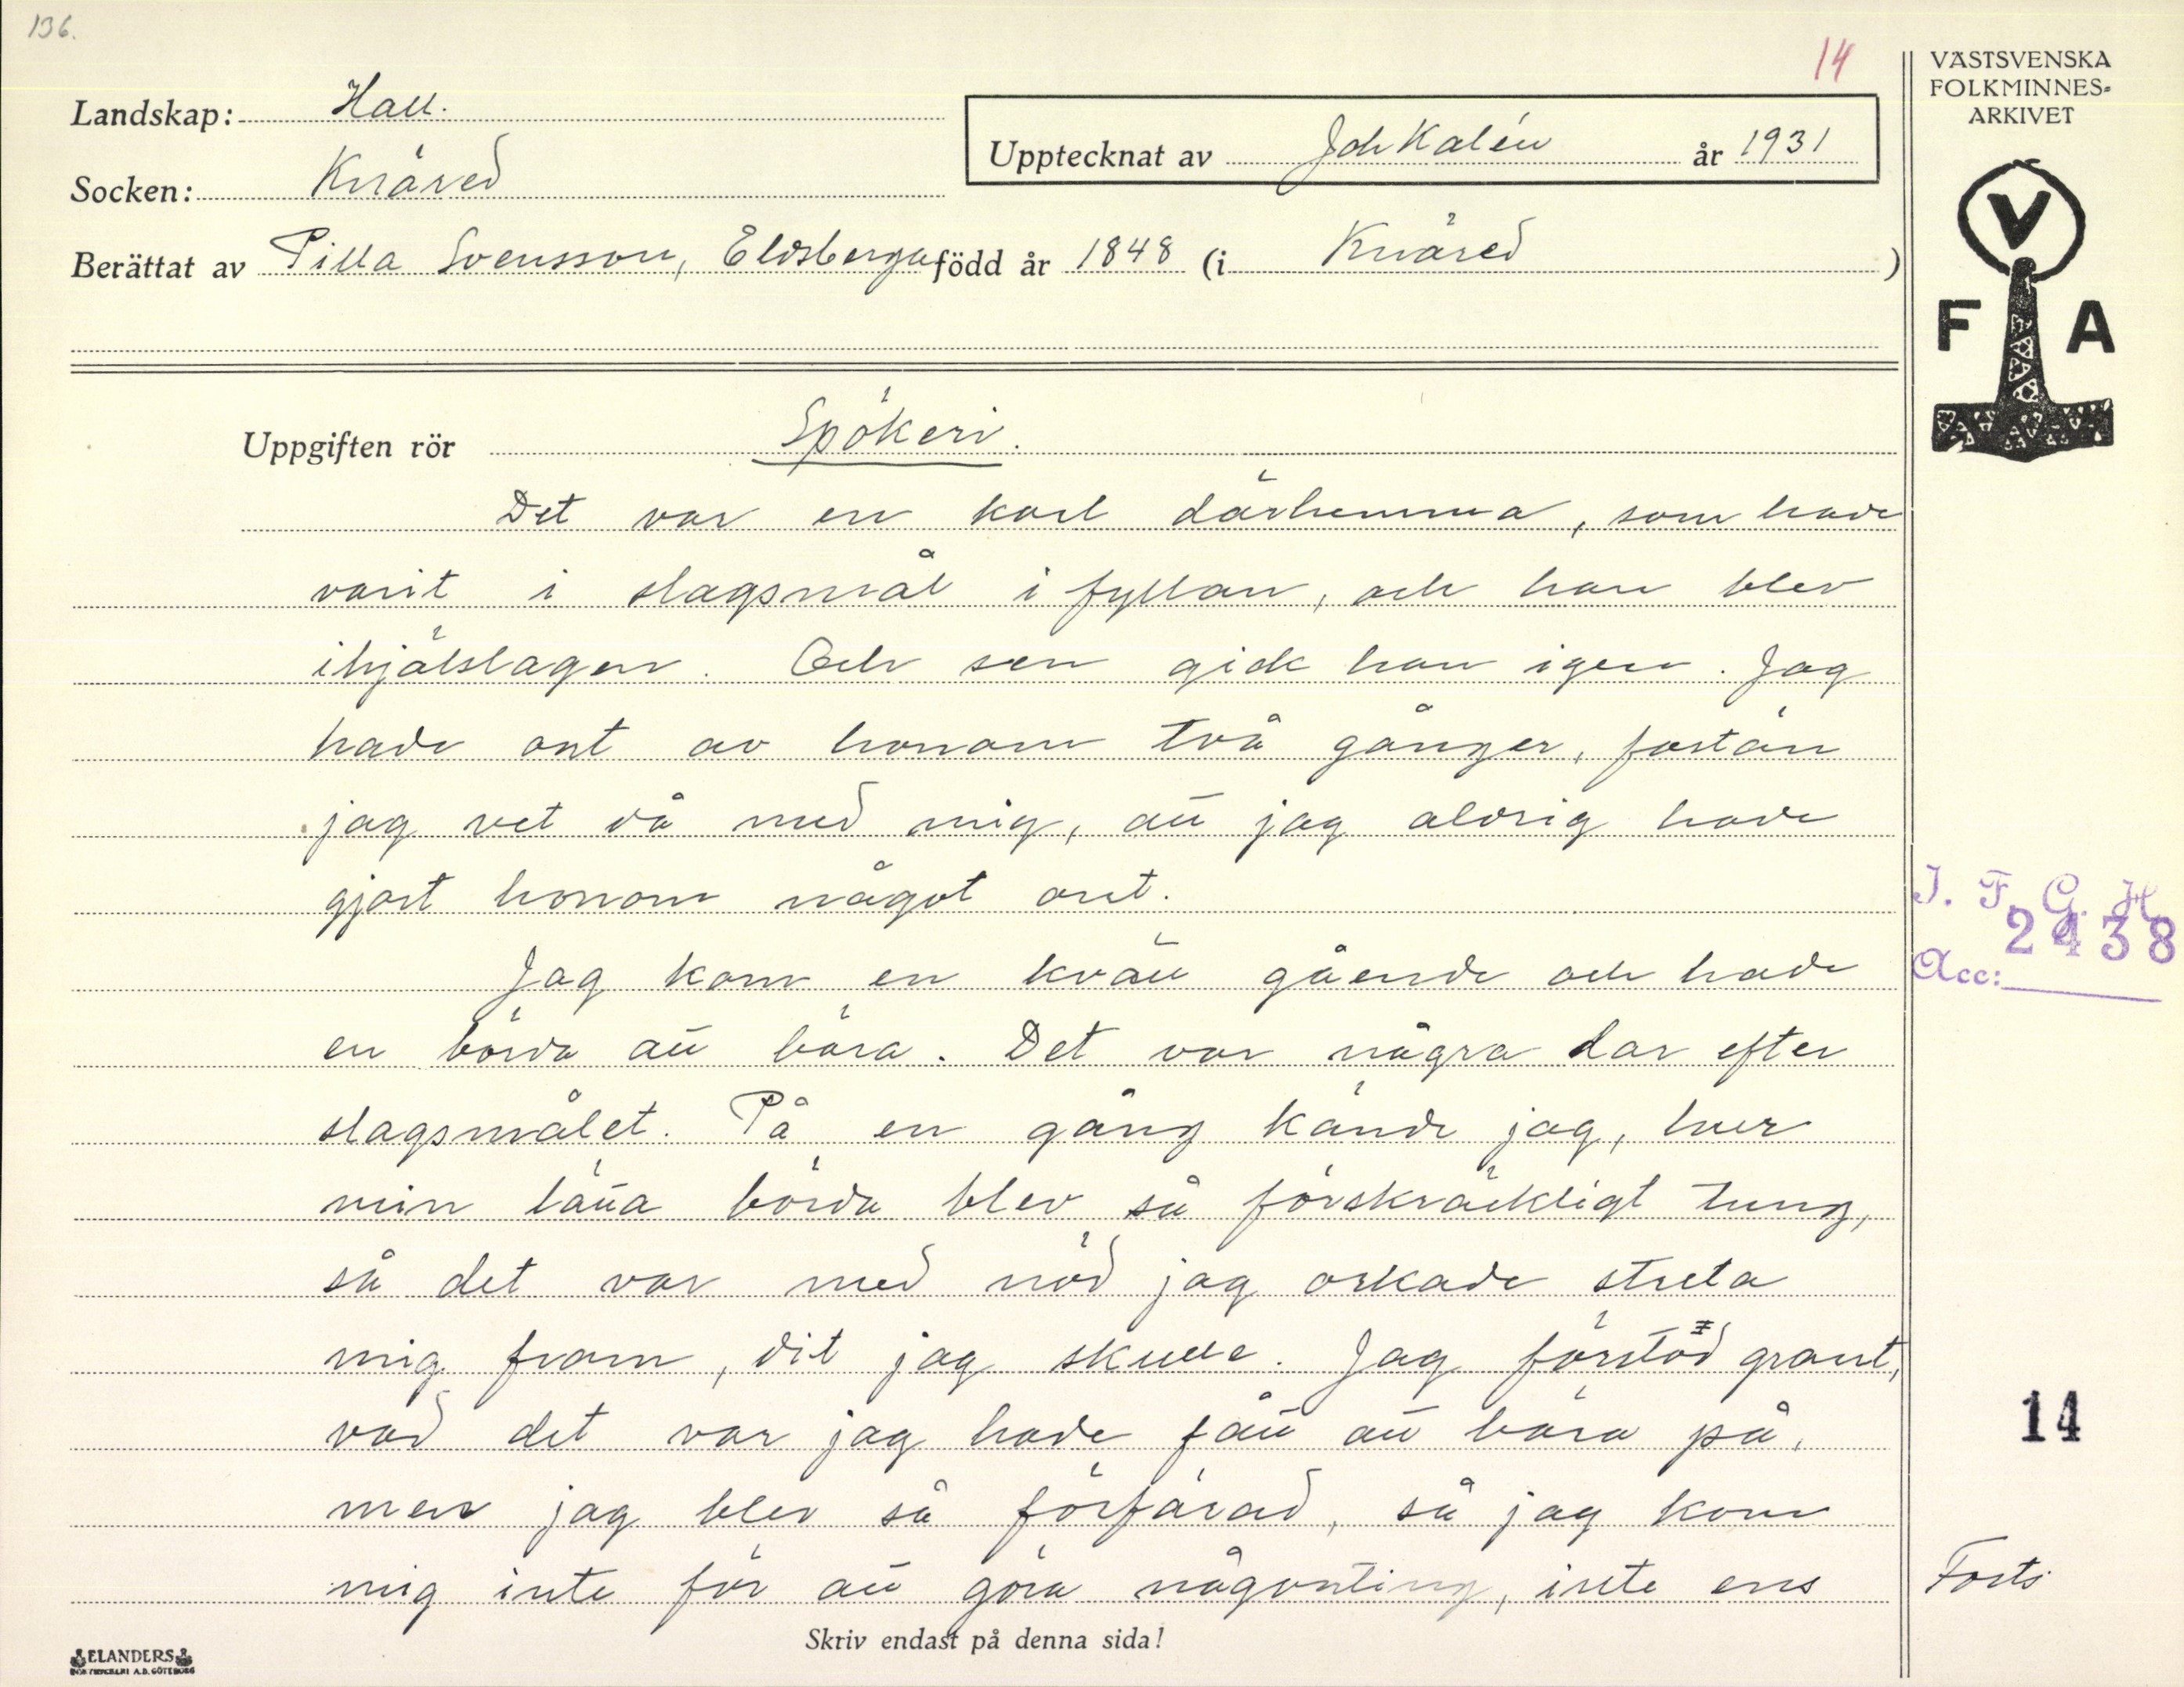 136.
14
VÄSTSVENSKA
FOLKMINNES-
ARKIVET
Landskap: Hall.
Upptecknat av Joh Kalén år 1931
Socken: Knäred
Berättat av Pilla Svensson, Eldsberga född år 1848 (i Knäred)
V
F A
Uppgiften rör Spökeri.
Det var en karl därhemma, som hade
varit i slagsmål i fyllan, och han blev
ihjälslagen. Och sen gick han igen. Jag
hade ont av honom två gånger, fastän
jag vet då med mig, att jag aldrig hade
gjort honom något ont.
Jag kom en kväll gående och hade
en börda att bära. Det var några dar efter
slagsmålet. På en gång kände jag, hur
min lätta börda blev så förskräckligt tung,
så det var med nöd jag orkade streta
mig fram, dit jag skulle. Jag förstod grant,
vad det var jag hade fått att bära på,
men jag blev så förfärad, så jag kom
mig inte för att göra någonting, inte ens
I. F. G. H.
2438
Acc:
14
Forts.
Skriv endast på denna sida!
ELANDERS
BOKTRYCKERI A.B. GÖTEBORG